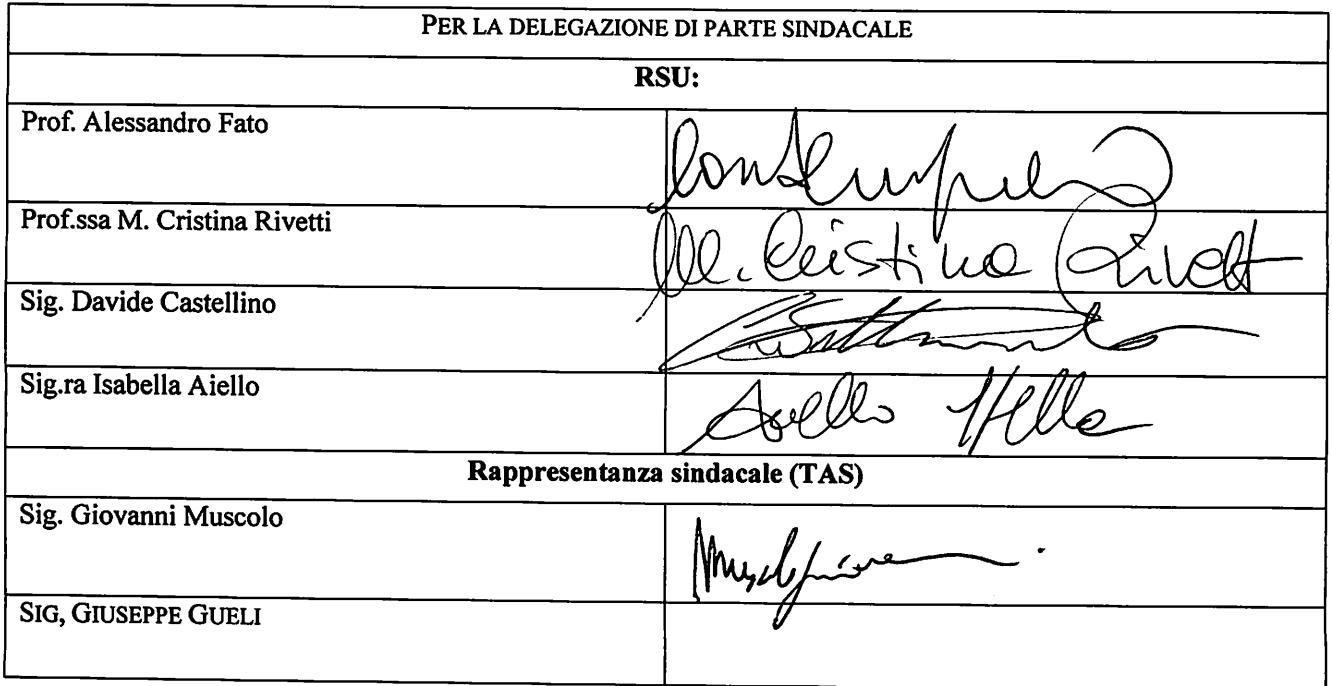 PER LA DELEGAZIONE DI PARTE SINDACALE
RSU:
Prof. Alessandro Fato
Prof.ssa M. Cristina Rivetti
M. Cristina Rivetti
Sig. Davide Castellino
Sig.ra Isabella Aiello
Aiello
Rappresentanza sindacale (TAS)
Sig. Giovanni Muscolo
SIG, GIUSEPPE GUELI